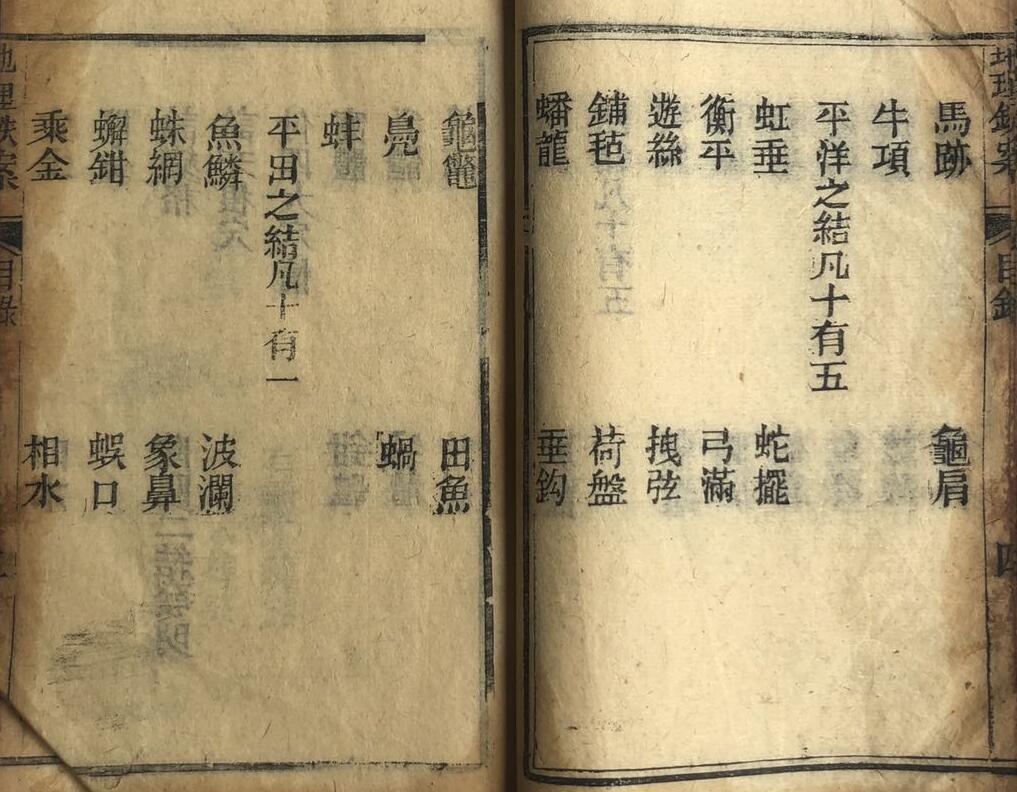 地理鉄案
目錄
四
馬跡 龜肩
牛項
平洋之結凡十有五
虹垂 蛇擺
衡平 弓滿
遊絲 拽弦
鋪毡 荷盤
蟠龍 垂鈎
龜鼈 田魚
鳧 蝸
蚌
平田之結凡十有一
魚鱗 波瀾
蛛網 象鼻
蠏鉗 蜈口
乘金 相水
地理鉄案
目錄